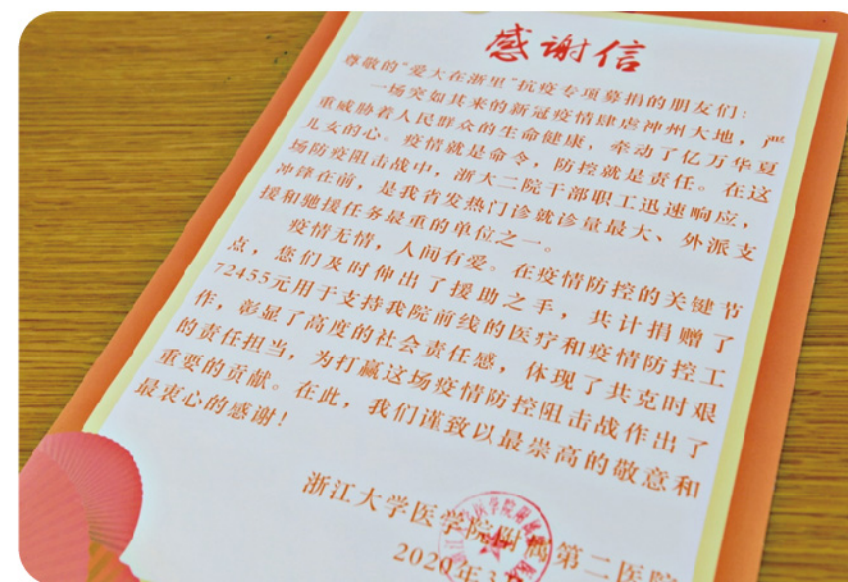 感谢信
尊敬的“爱大在浙里”抗疫专项募捐的朋友们：
一场突如其来的新冠疫情肆虐神州大地，严
重威胁着人民群众的生命健康，牵动了亿万华夏
儿女的心。疫情就是命令，防控就是责任。在这
场防疫阻击战中，浙大二院干部职工迅速响应，
冲锋在前，是我省发热门诊就诊量最大、外派支
援和驰援任务最重的单位之一。
疫情无情，人间有爱。在疫情防控的关键节
点，您们及时伸出了援助之手，共计捐赠了
72455元用于支持我院前线的医疗和疫情防控工
作，彰显了高度的社会责任感，体现了共克时艰
的责任担当，为打赢这场疫情防控阻击战作出了
重要的贡献。在此，我们谨致以最崇高的敬意和
最衷心的感谢！
浙江大学医学院附属第二医院
2020年3